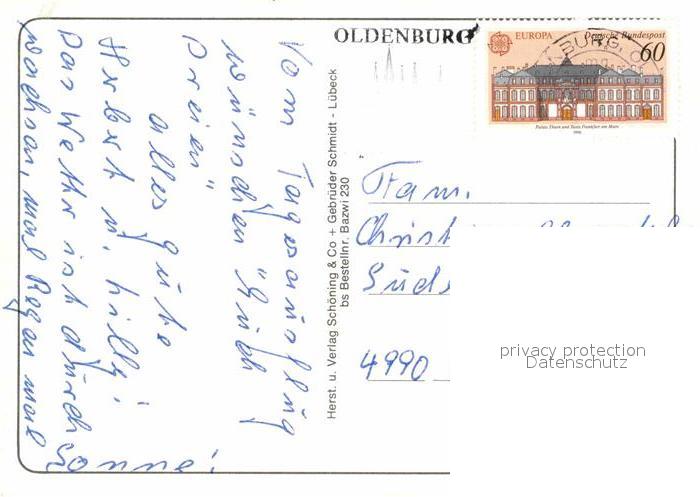 OLDENBURG
EUROPA Deutsche Bundespost
60
BURG, O
Palais Thurn und Taxis Frankfurt am Main
1990
Vom Tagesausflug
wünschen "Euch
Dreien"
alles gute
Herbert u. Hilly!
Das Wettr ist dürch
wachsen, mal Regen mal
Sonne!
Herst. u. Verlag Schöning & Co + Gebrüder Schmidt - Lübeck
bs Bestellnr. Bazwi 230
Fam.
Christ
Süds
4990
privacy protection
Datenschutz